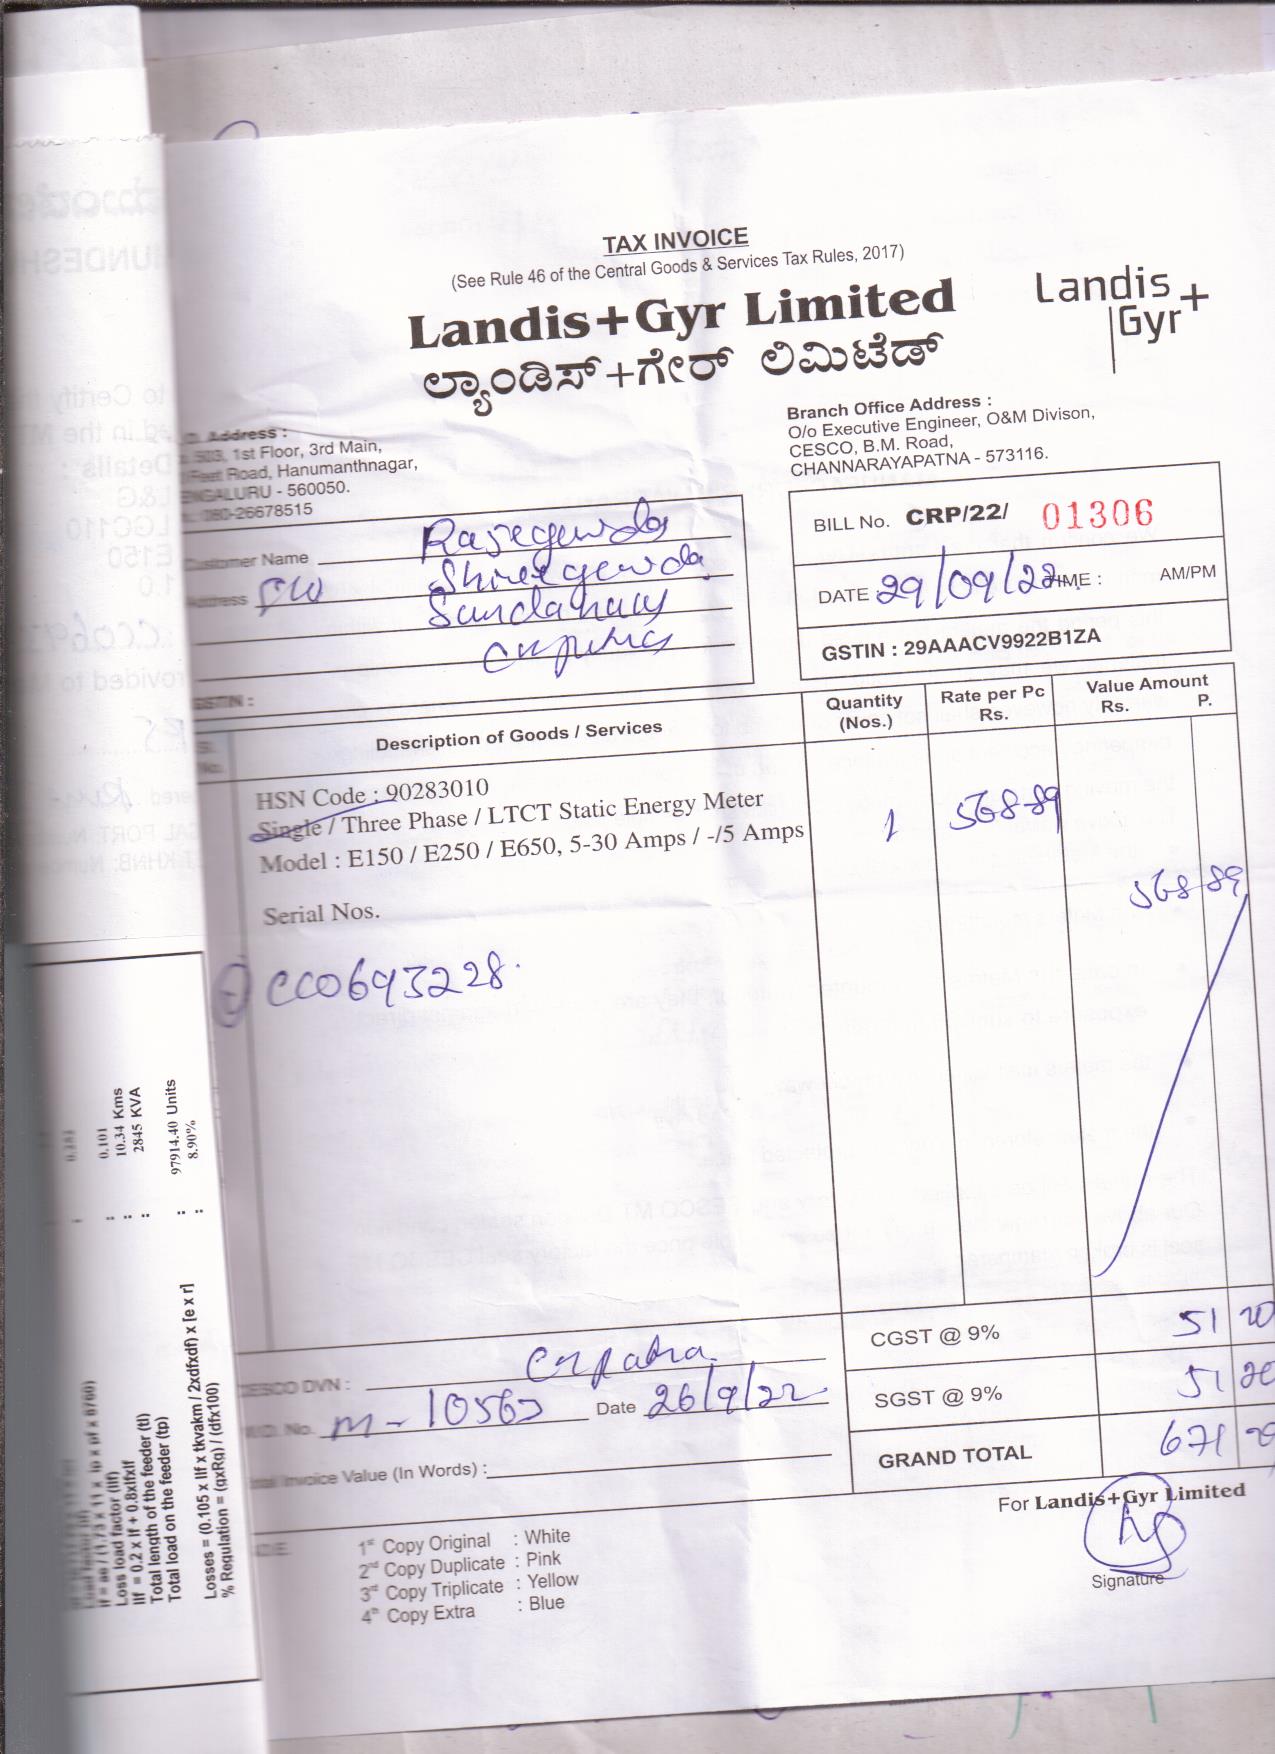 TAX INVOICE
(See Rule 46 of the Central Goods & Services Tax Rules, 2017)
Landis+Gyr Limited
ಲ್ಯಾಂಡಿಸ್+ಗೇರ್ ಲಿಮಿಟೆಡ್
Landis
Gyr+
Address :
503, 1st Floor, 3rd Main,
Feet Road, Hanumanthnagar,
ENGALURU - 560050.
080-26678515
Branch Office Address :
O/o Executive Engineer, O&M Divison,
CESCO, B.M. Road,
CHANNARAYAPATNA - 573116.
Customer Name Rajegowda
Address S/o Shivegowda
Sundahally
CRPatna
GSTIN :
BILL No. CRP/22/ 01306
DATE : 29/09/22 TIME : AM/PM
GSTIN : 29AAACV9922B1ZA
Sl. No. Description of Goods / Services Quantity (Nos.) Rate per Pc Rs. Value Amount Rs. P.
HSN Code : 90283010
Single / Three Phase / LTCT Static Energy Meter 1 568-89
Model : E150 / E250 / E650, 5-30 Amps / -/5 Amps
568 89
Serial Nos.
CC0693228
CGST @ 9% 51 20
SGST @ 9% 51 20
GRAND TOTAL 671 29
CESCO DVN : CRPatna
No. M-10563 Date 26/9/22
Invoice Value (In Words) :
For Landis+Gyr Limited
Signature
1st Copy Original : White
2nd Copy Duplicate : Pink
3rd Copy Triplicate : Yellow
4th Copy Extra : Blue
0.101
10.34 Kms
2845 KVA
97914.40 Units
8.90%
Loss load factor (llf)
llf = 0.2 x lf + 0.8xlfxlf
Total length of the feeder (tl)
Total load on the feeder (tp)
Losses = (0.105 x llf x tkvakm / 2xdfxdf) x [e x r]
% Regulation = (gxRg) / (dfx100)